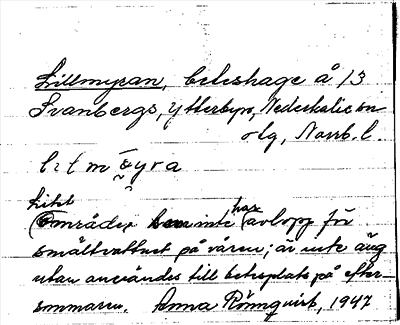 Lillmyran, beteshage å 13
Svanbergs, Ytterbyn, Nederkalix sn
Norrb. l.
Litet
området som inte har avlopp för
smältvattnet på våren; är inte äng
utan användes till betesplats på efter-
sommaren. Anna Rönnqvist, 1947